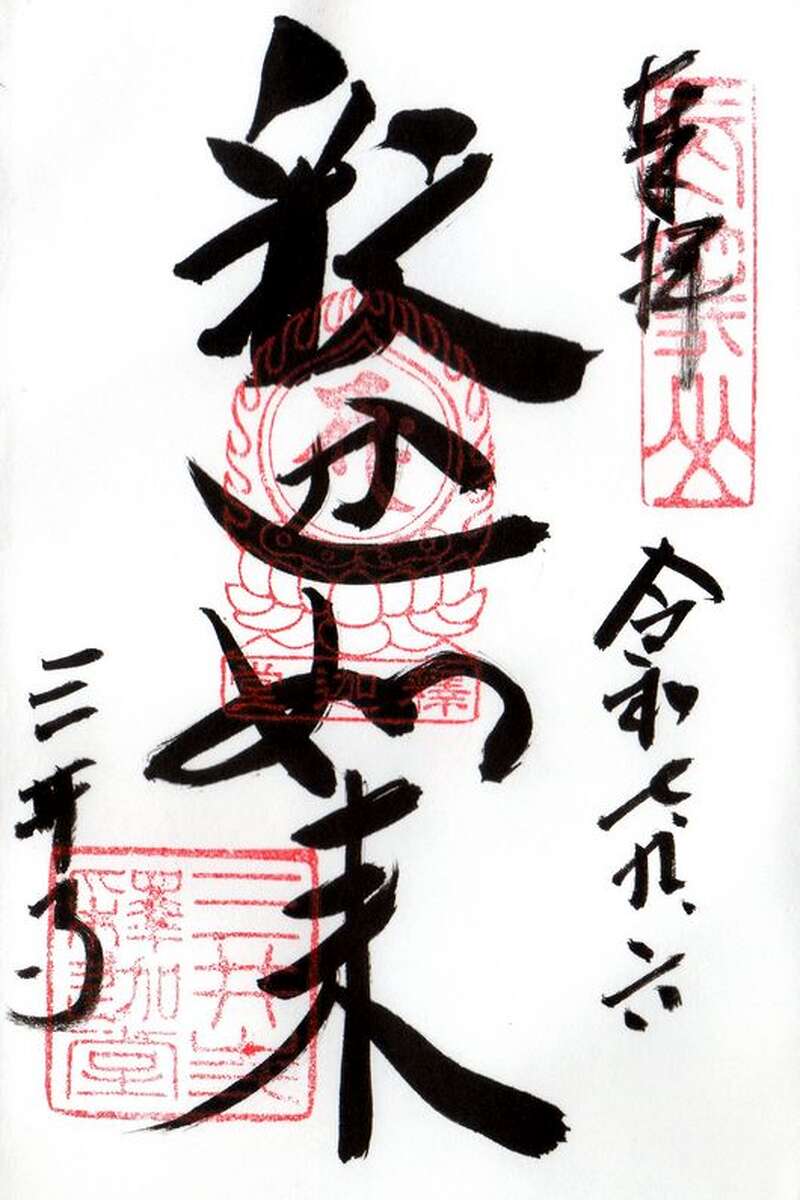 奉拝
長等山
令和七、九、六
釈迦如来
釋迦堂
三井寺
三井寺